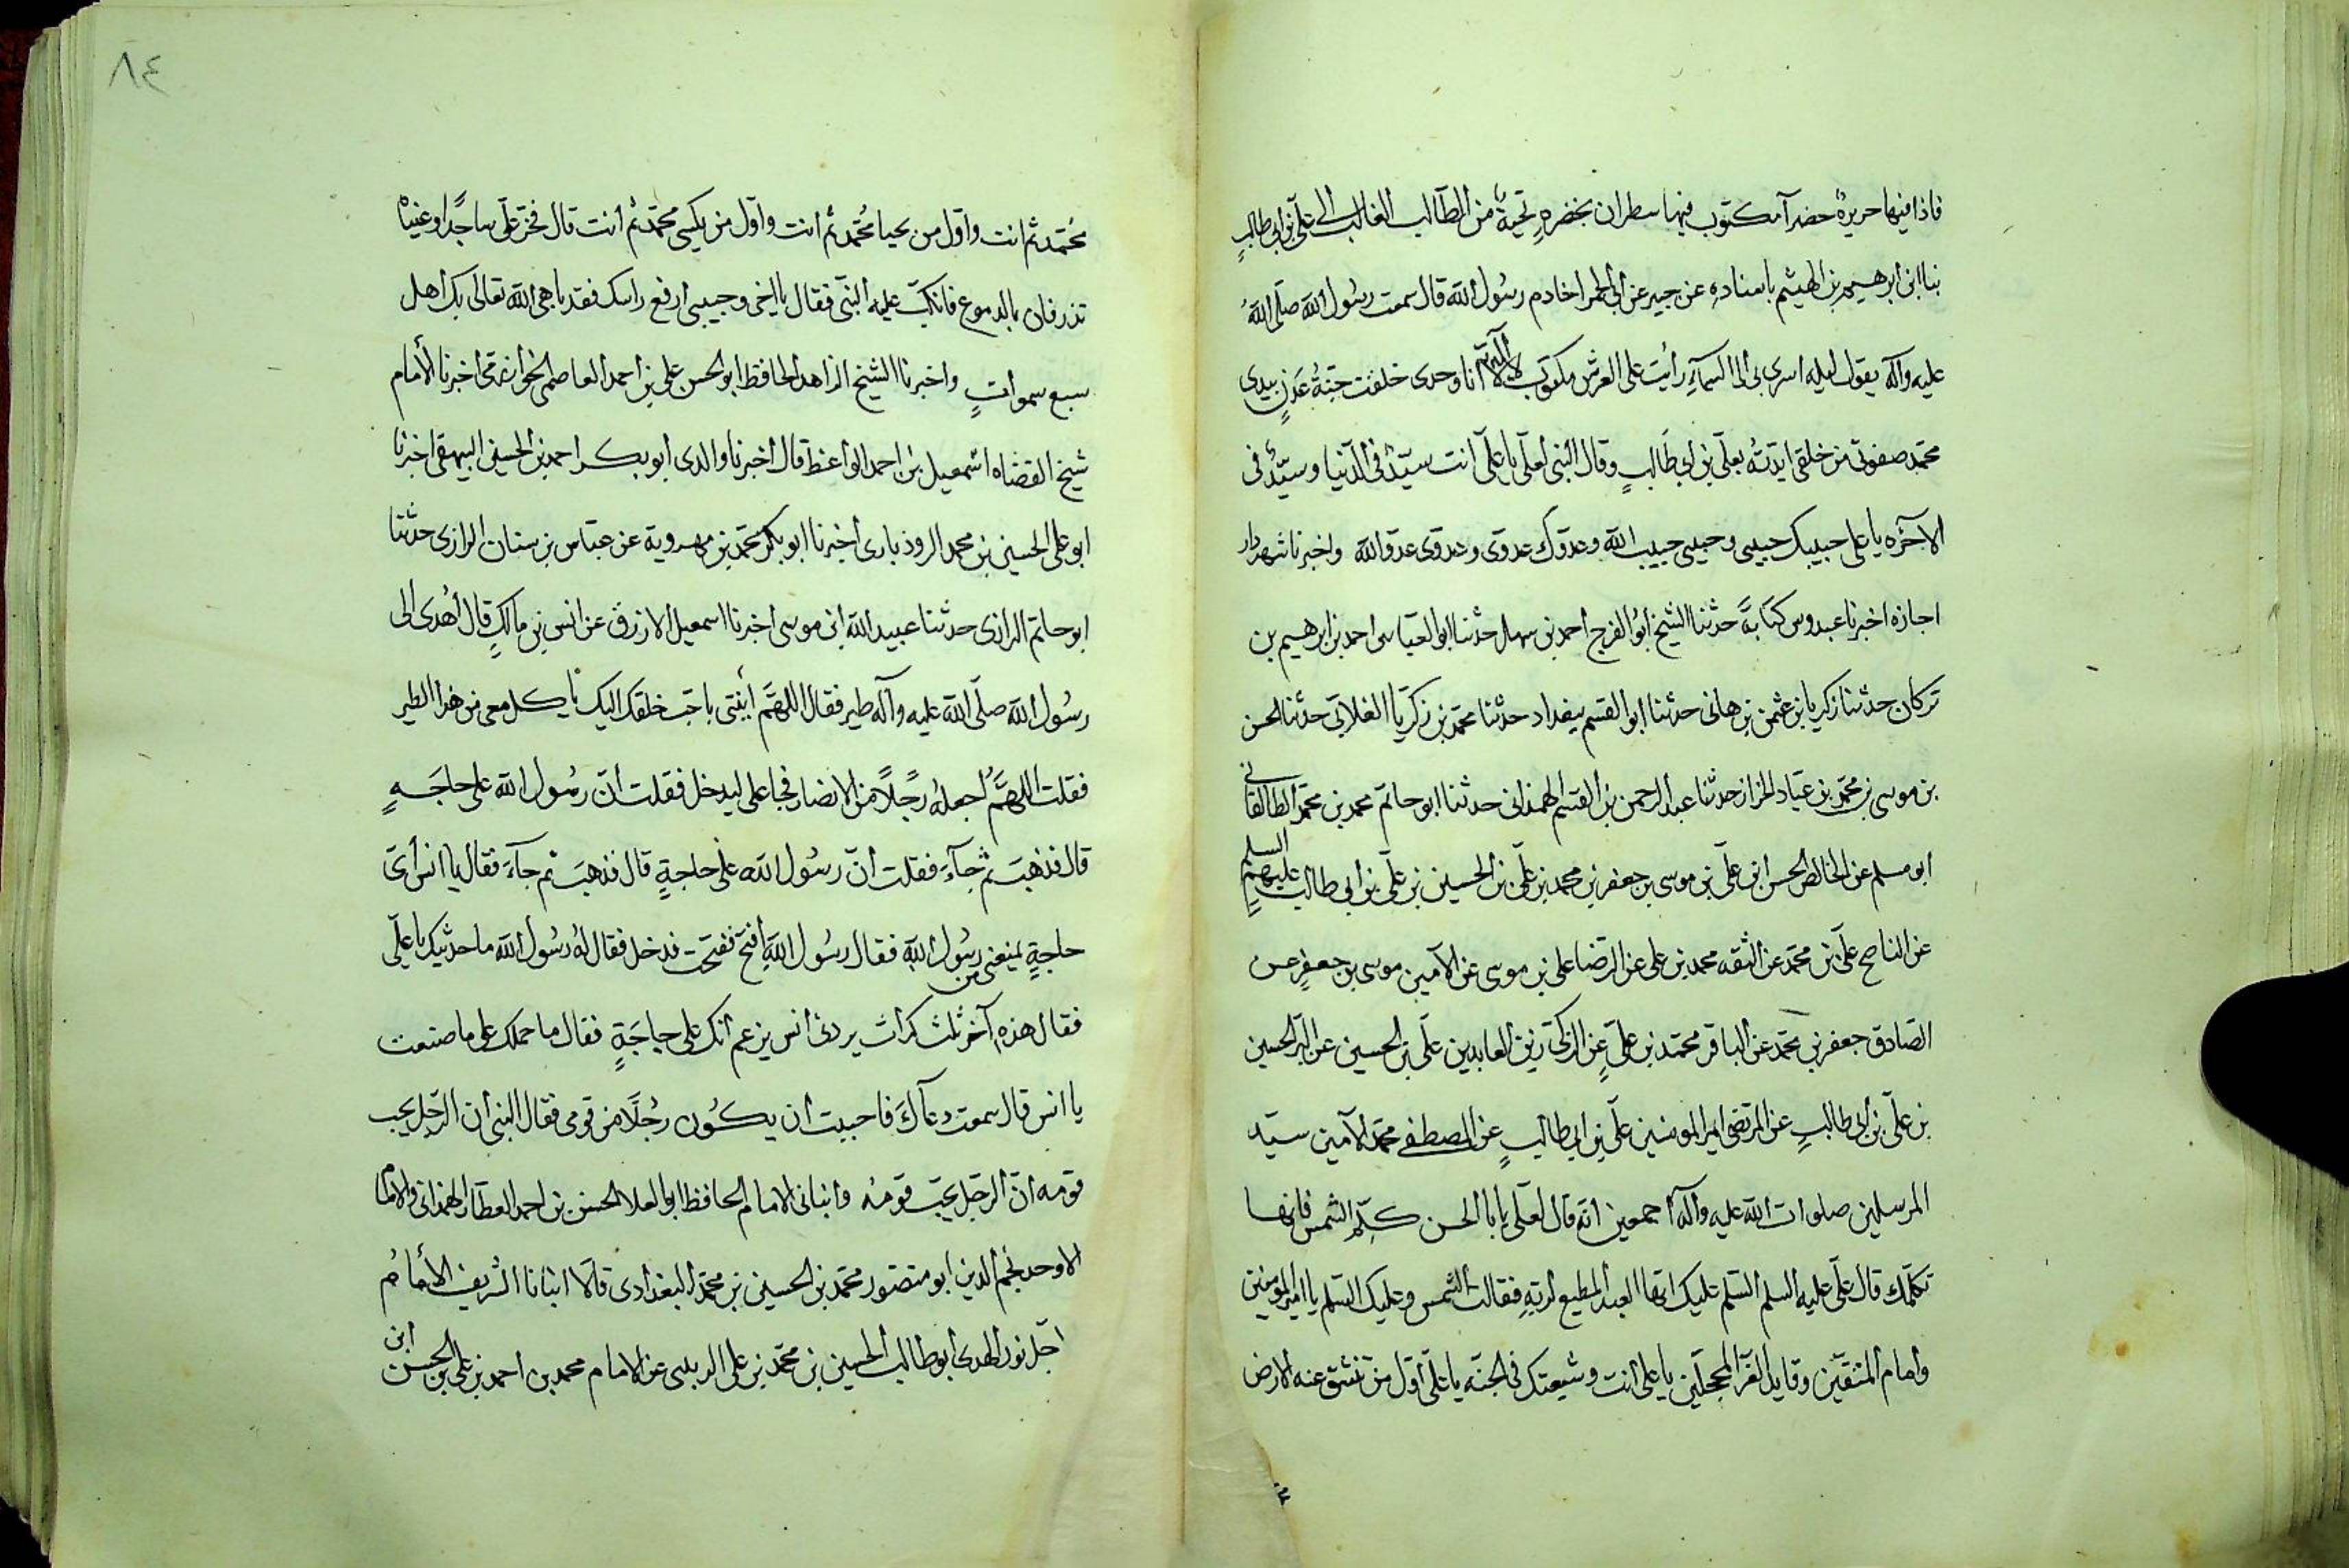 فاذا فيها حريرة خضرآ مكتوب فيها سطران بخضره تحية من الطالب الغالب الى علّى بن ابى طالبٍ
بنا ابن ابرهيم بن الهيثم باسناده عن جبير عن ابى الحمرا خادم رسُول الله قال سمعت رسُول الله صلّى اللهُ
عليه وآله يقول ليله اسرى بى الى السمآءِ رأيت على العرش مكتوب لا اله الا انا وحدى خلقت جنّةُ عَدنٍ بيدى
محمّد صفوتى من خلقى ايّدتُه بعلّى بن ابى طَالبٍ وقال النبى لعلّى يا علّى انت سيّدٌ فى الدّنيا وسيّدٌ فى
الآخرَه يا على حبيبك حبيبى وحبيبى حبيب الله وعدوّك عدوّى وعدوّى عدوّ الله واخبرنا شهردار
اجازه اخبرنا عبدوس كتَابةً حدثنا الشيخ ابُو الفرج احمد بن سهل حدثنا ابو العبّاس احمد بن ابرهيم بن
تركان حدثنا زكريا بن عثمن بن هانى حدثنا ابو القسم ببغداد حدثنا محمّد بن زكريّا الغلابى حدثنا الحسن
بن موسى بن محمّد بن عبّاد الخزاز حدثنا عبد الرحمن بن القسم الهمذانى حدثنا ابو حاتم محمد بن محمّد الطالقانى
ابو مسلم عن الخالص الحسن ابن علّى بن موسى بن جعفر بن محمد بن علّى بن الحسين بن علّى بن ابى طالب عليهم السلم
عن الناصح علّى بن محمّد عن الثقه محمد بن على عن الرّضا على بن موسى عن الآمين موسى بن جعفرٍ عن
الصّادق جعفر بن محمد عن الباقر محمّد بن علىٍّ عن الزكىّ زين العابدين علّى بن الحسين عن البرّ الحسين
بن علّى بن ابى طالبٍ عن المرتضى امير المومنين علّى بن ابى طالبٍ عن المصطفى محمّد الآمين سيّد
المرسلين صلوات الله عليه وآله اجمعين انّه قال لعلّى يا ابا الحسن كلّم الشمس فانها
تكلّمك قال علّى عليه السلم السّلم عليك ايّها العبد المطيع لربّهِ فقالت الشمس وعليك السّلم يا امير المومنين
وامام المتّقين وقايد الغرّ المحجلين يا على انت وشيعتك فى الجنّه يا علّى اوّل من تنشقّ عنه الارض
محمّد ثم انت واوّل من يحيا مُحمّد ثم انت واوّل من يكسى محمّد ثم انت قال فخرّ علّى ساجدًا وعيناه
تذرفان بالدموع فانكبّ عليه النبىّ فقال يا اخى وحبيبى ارفع راسك فقد باهى الله تعالى بك اهل
سبع سمواتٍ واخبرنا الشيخ الزاهد الحافظ ابو الحسن على بن احمد العاصمى الخوارزمى اخبرنا الأمام
شيخ القضاه اسمعيل بن احمد الواعظ قال اخبرنا والدى ابو بكر احمد بن الحسين البيهقى اخبرنا
ابو على الحسين بن محمد الروذبارى اخبرنا ابو بكر محمّد بن مهروية عن عبّاس بن سنان الرازى حدثنا
ابو حاتم الرازى حدثنا عبيد الله ابن موسى اخبرنا اسمعيل الازرق عن انس بن مالكٍ قال اُهدى الى
رسُول الله صلّى الله عليه وآله طير فقال اللهمَّ أيتنى باحبّ خلقك اليك ياكل معى من هذا الطير
فقلت اللهمَّ اجعله رجُلًا من الانصار فجا على ليدخل فقلت انّ رسُول الله على حاجَةٍ
قال فذهبَ ثم جآءَ فقلت انّ رسُول الله على حاجةٍ قال فذهبَ ثم جآءَ فقال يا انس اىّ
حاجةٍ يمنعنى من رسُول اللهِ فقال رسُول اللهِ افتح ففتحت فدخل فقال لهُ رسُول الله ما حديثك يا علّى
فقال هذه آخر ثلث كرات يردنى انس يزعم انك على حاجَةٍ فقال ما حملك على ما صنعت
يا انس قال سمعت دعآكَ فاحببت ان يكُون رجُلًا من قومى فقال النبى ان الرّجل يحب
قومه انّ الرجل يحبّ قومه وانبانى الامام الحافظ ابو العلا الحسن بن احمد العطّار الهمدانى والامام
الاوحد نجم الدين ابو منصور محمّد بن الحسين بن محمّد البغدادى قالا انبانا الشريف الأمامُ
اجلّ نور الهدى ابو طالب الحسين بن محمّد بن على الدينبى عن الامام محمد بن احمد بن على بن الحسن ابن
٨٤